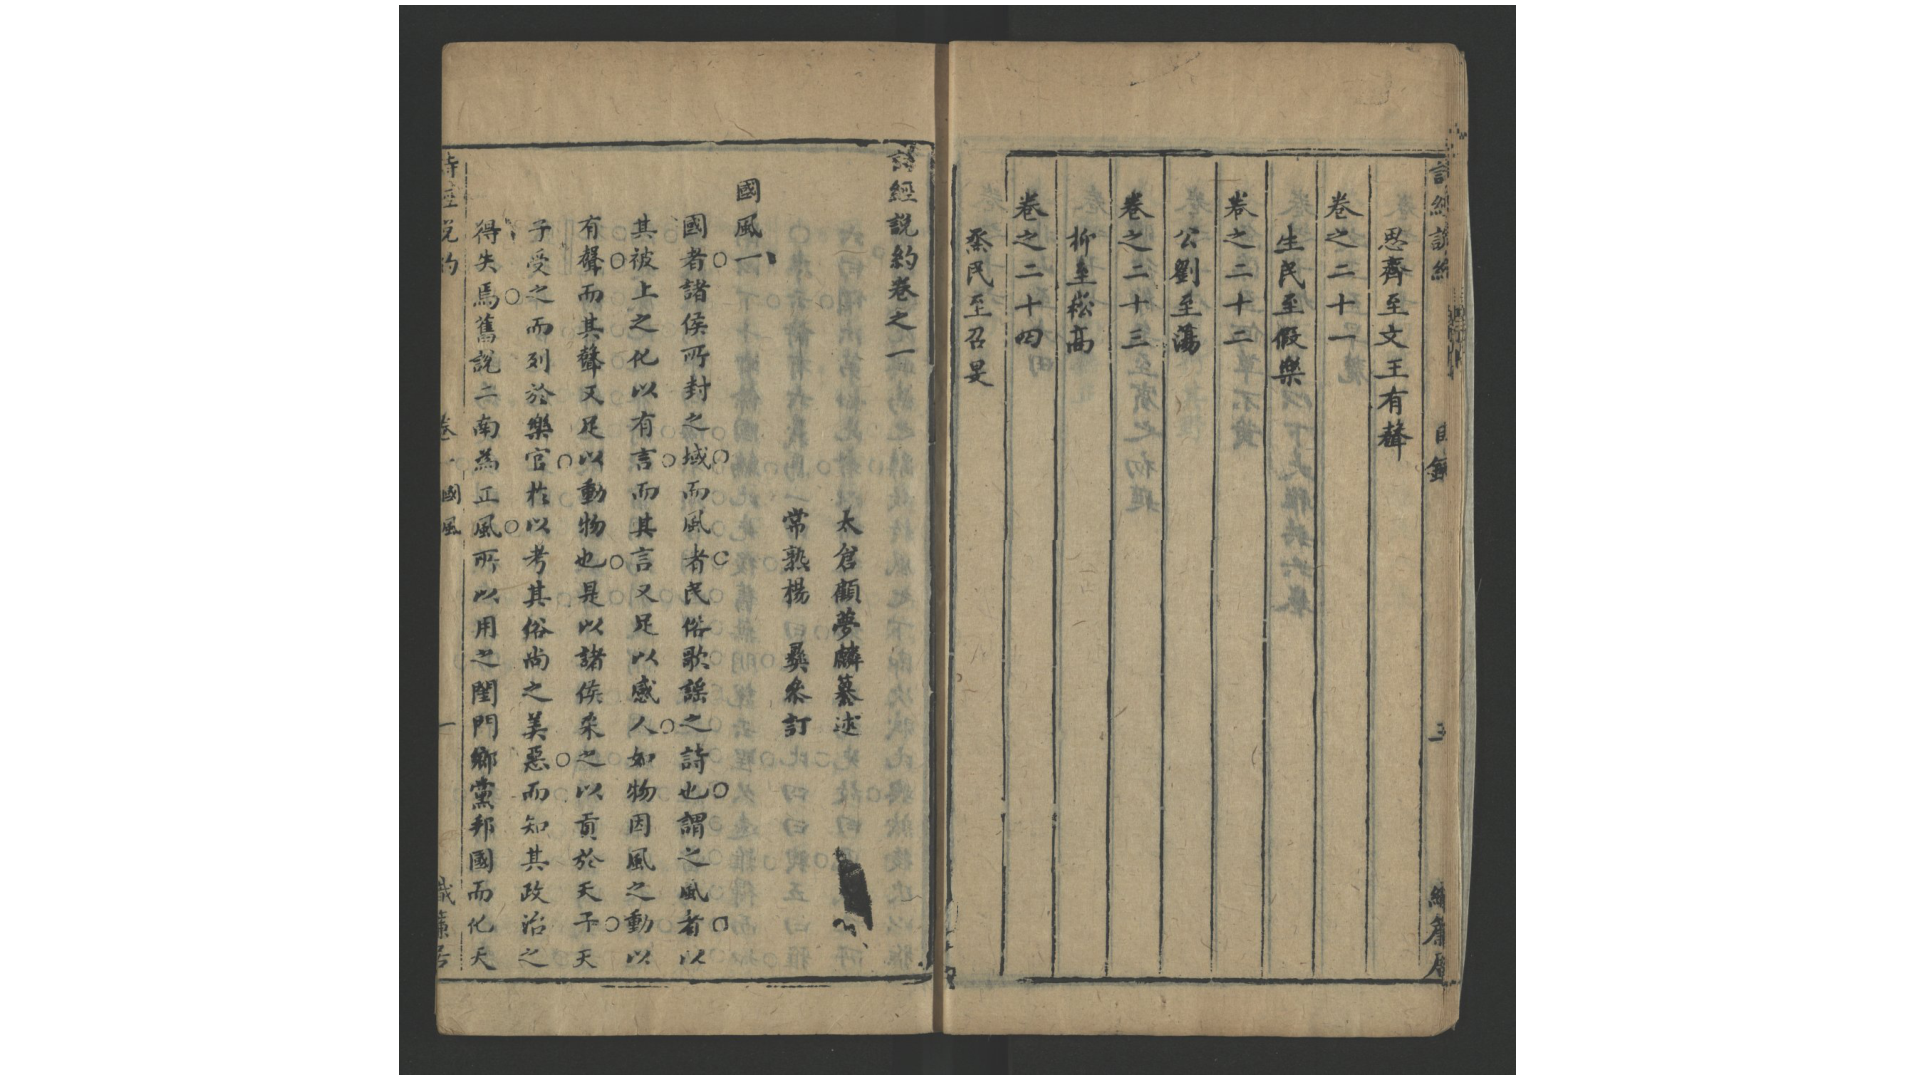 詩經說約 目錄 三 織簾居
思齊至文王有聲
卷之二十一
生民至假樂
卷之二十二
公劉至蕩
卷之二十三
抑至崧高
卷之二十四
烝民至召旻
詩經說約卷之一
太倉顧夢麟纂述
常熟楊 彝參訂
國風一
國者諸侯所封之域而風者民俗歌謠之詩也謂之風者以
其被上之化以有言而其言又足以感人如物因風之動以
有聲而其聲又足以動物也是以諸侯采之以貢於天子天
子受之而列於樂官於以考其俗尚之美惡而知其政治之
得失焉舊說二南為正風所以用之閨門鄉黨邦國而化天
詩經說約 卷一 國風 一 織簾居